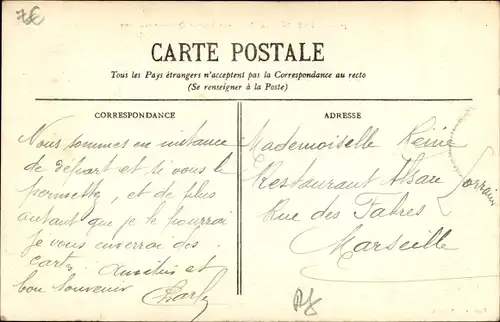 7€
CARTE POSTALE
Tous les Pays étrangers n'acceptent pas la Correspondance au recto
(Se renseigner à la Poste)
CORRESPONDANCE
Nous sommes en instance
de départ et si vous le
permettez, et de plus
autant que je le pourrai
je vous enverrai des
cartes. Amitiés et
bon souvenir Charly
ADRESSE
Mademoiselle Reine
Restaurant Alsace Lorraine
Rue des Fabres
Marseille